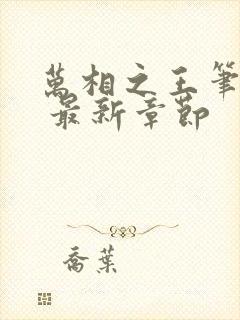 萬相之王筆
最新章節
喬葉